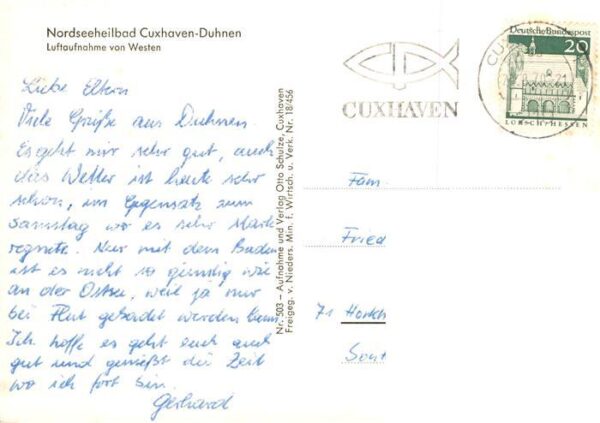 Nordseeheilbad Cuxhaven-Duhnen
Luftaufnahme von Westen
Liebe Eltern
Viele Grüße aus Duhnen.
Es geht mir sehr gut, auch
das Wetter ist heute sehr
schön, im Gegensatz zum
Samstag wo es sehr stark
regnete. Nur mit dem Baden
ist es nicht so günstig wie
an der Ostsee, weil ja nur
bei Flut gebadet werden kann.
Ich hoffe es geht euch auch
gut und genießt die Zeit
wo ich fort bin.
Gerhard
Nr. 503 – Aufnahme und Verlag Otto Schulze, Cuxhaven
Freigeg. v. Nieders. Min. f. Wirtsch. u. Verk. Nr. 18/456
CUXHAVEN
Deutsche Bundespost
20
LORSCH/HESSEN
Fam.
Fried
71
Sont